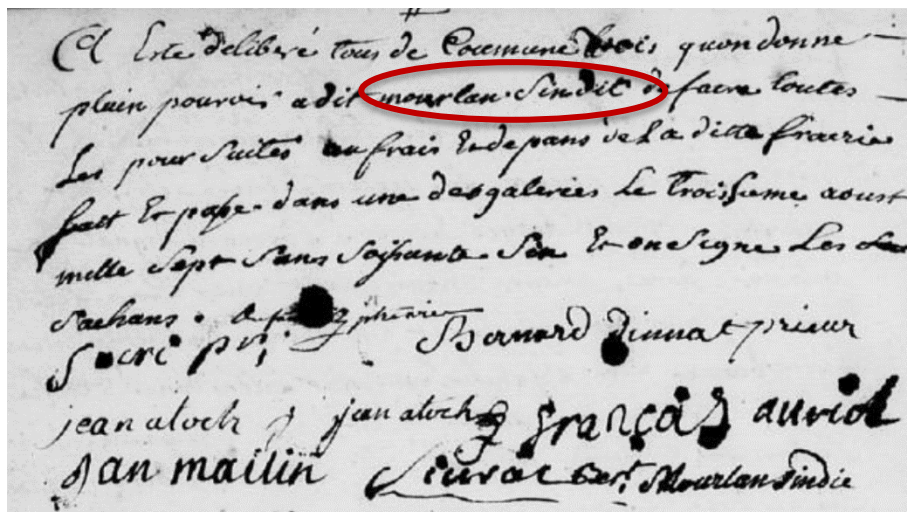 a Esté deliberé tous de Coumune voois quon donne
plain pouvoir a dit mourlan Sindit de faire toutes
Les pour Suites au frais Et depans de La ditte frairie
fait Et passe dans une des galeries Le Troissieme aoust
mille Sept Sans Soissante Six Et on Signe Les
Sachans.
Bernard Dinnat prieur
jean aloch jan aloch françois auriol
jan mailin Sieurac Mourlan Sindic